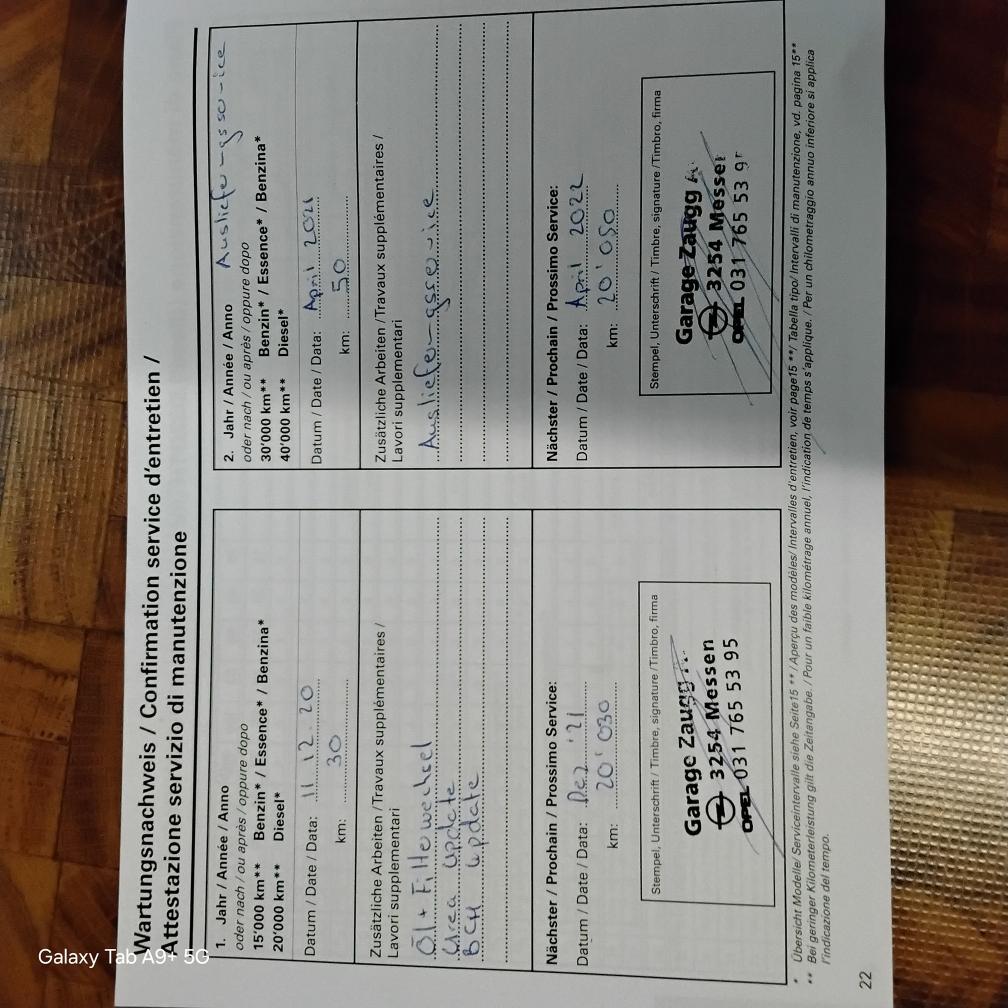 Wartungsnachweis / Confirmation service d'entretien /
Attestazione servizio di manutenzione
1. Jahr / Année / Anno
oder nach / ou après / oppure dopo
15'000 km** Benzin* / Essence* / Benzina*
20'000 km** Diesel*
Datum / Date / Data: 11 12 20
km: 30
Zusätzliche Arbeiten / Travaux supplémentaires /
Lavori supplementari
Öl + Filterwechsel
Urea update
BCM update
Nächster / Prochain / Prossimo Service:
Datum / Date / Data: Dez '21
km: 20'030
Stempel, Unterschrift / Timbre, signature / Timbro, firma
Garage Zaugg
3254 Messen
OPEL 031 765 53 95
2. Jahr / Année / Anno Ausliefer-gsservice
oder nach / ou après / oppure dopo
30'000 km** Benzin* / Essence* / Benzina*
40'000 km** Diesel*
Datum / Date / Data: April 2021
km: 50
Zusätzliche Arbeiten / Travaux supplémentaires /
Lavori supplementari
Ausliefer-gsservice
Nächster / Prochain / Prossimo Service:
Datum / Date / Data: April 2022
km: 20'050
Stempel, Unterschrift / Timbre, signature / Timbro, firma
Garage Zaugg
3254 Messen
OPEL 031 765 53
* Übersicht Modelle/ Serviceintervalle siehe Seite15 ** / Aperçu des modèles/ Intervalles d'entretien, voir page15 **/ Tabella tipo/ Intervalli di manutenzione, vd. pagina 15**
** Bei geringer Kilometerleistung gilt die Zeitangabe. / Pour un faible kilométrage annuel, l'indication de temps s'applique. / Per un chilometraggio annuo inferiore si applica
l'indicazione del tempo.
22
Galaxy Tab A9+ 5G